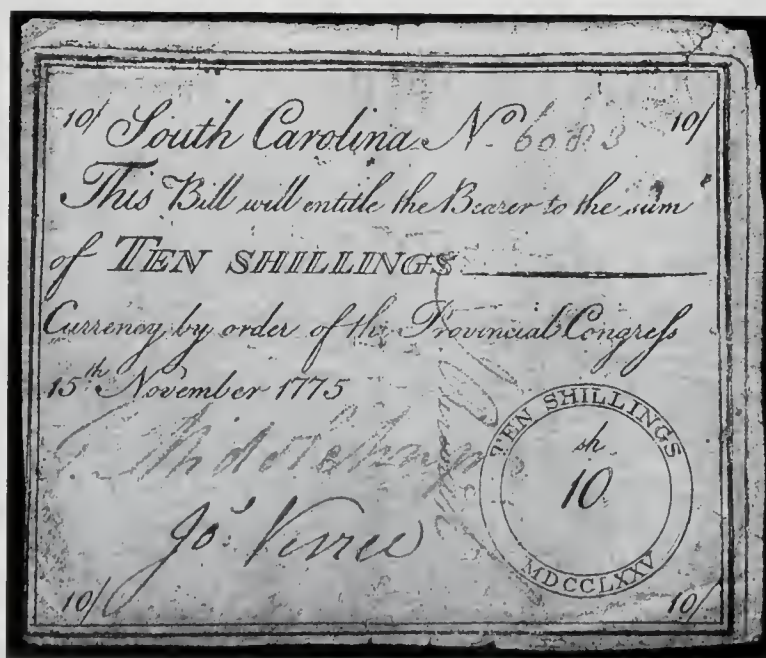 10/ South Carolina No. 6083 10/
This Bill will entitle the Bearer to the sum
of TEN SHILLINGS
Currency by order of the Provincial Congreſs
15.th November 1775
Jos. Verree
TEN SHILLINGS
sh
10
MDCCLXXV
10/ 10/